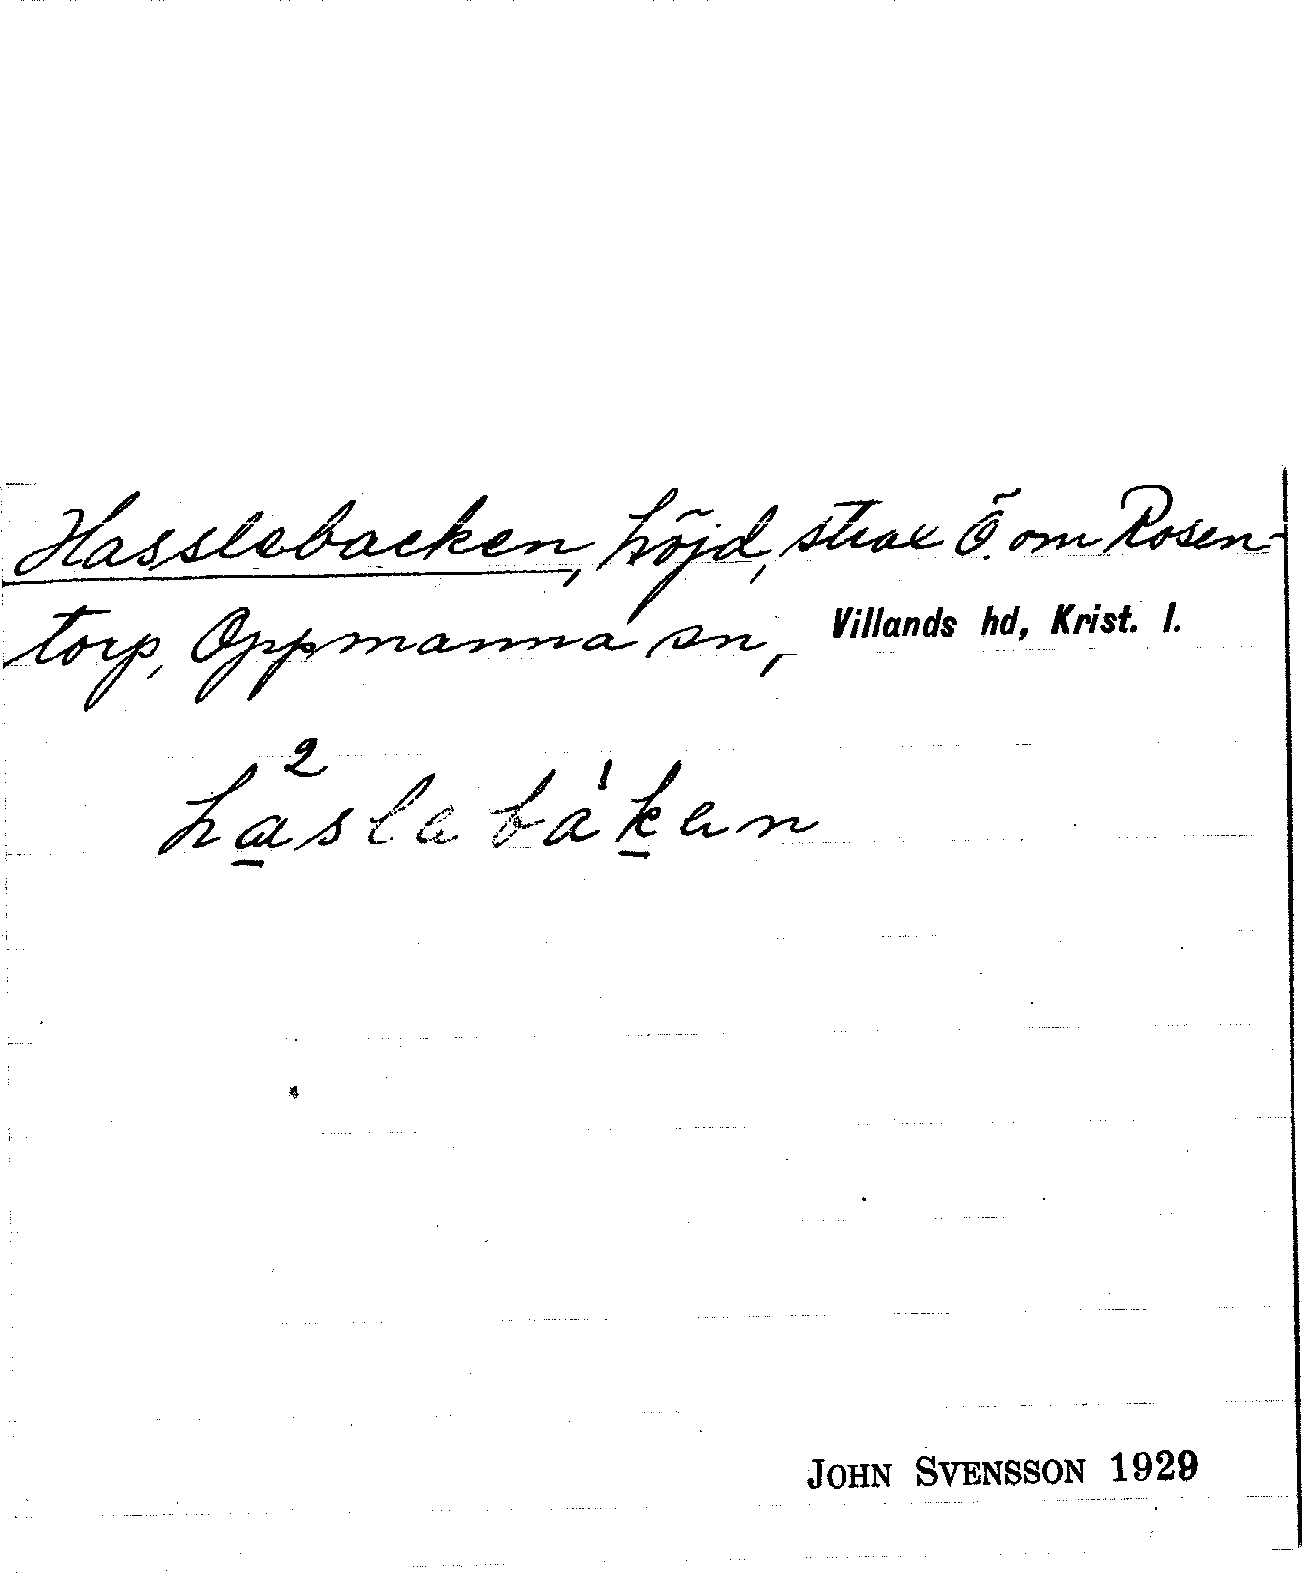 Hasslebacken, höjd, strax Ö. om Rosen-
torp, Oppmanna sn, Villands hd, Krist. l.
2
haslebáken
JOHN SVENSSON 1929